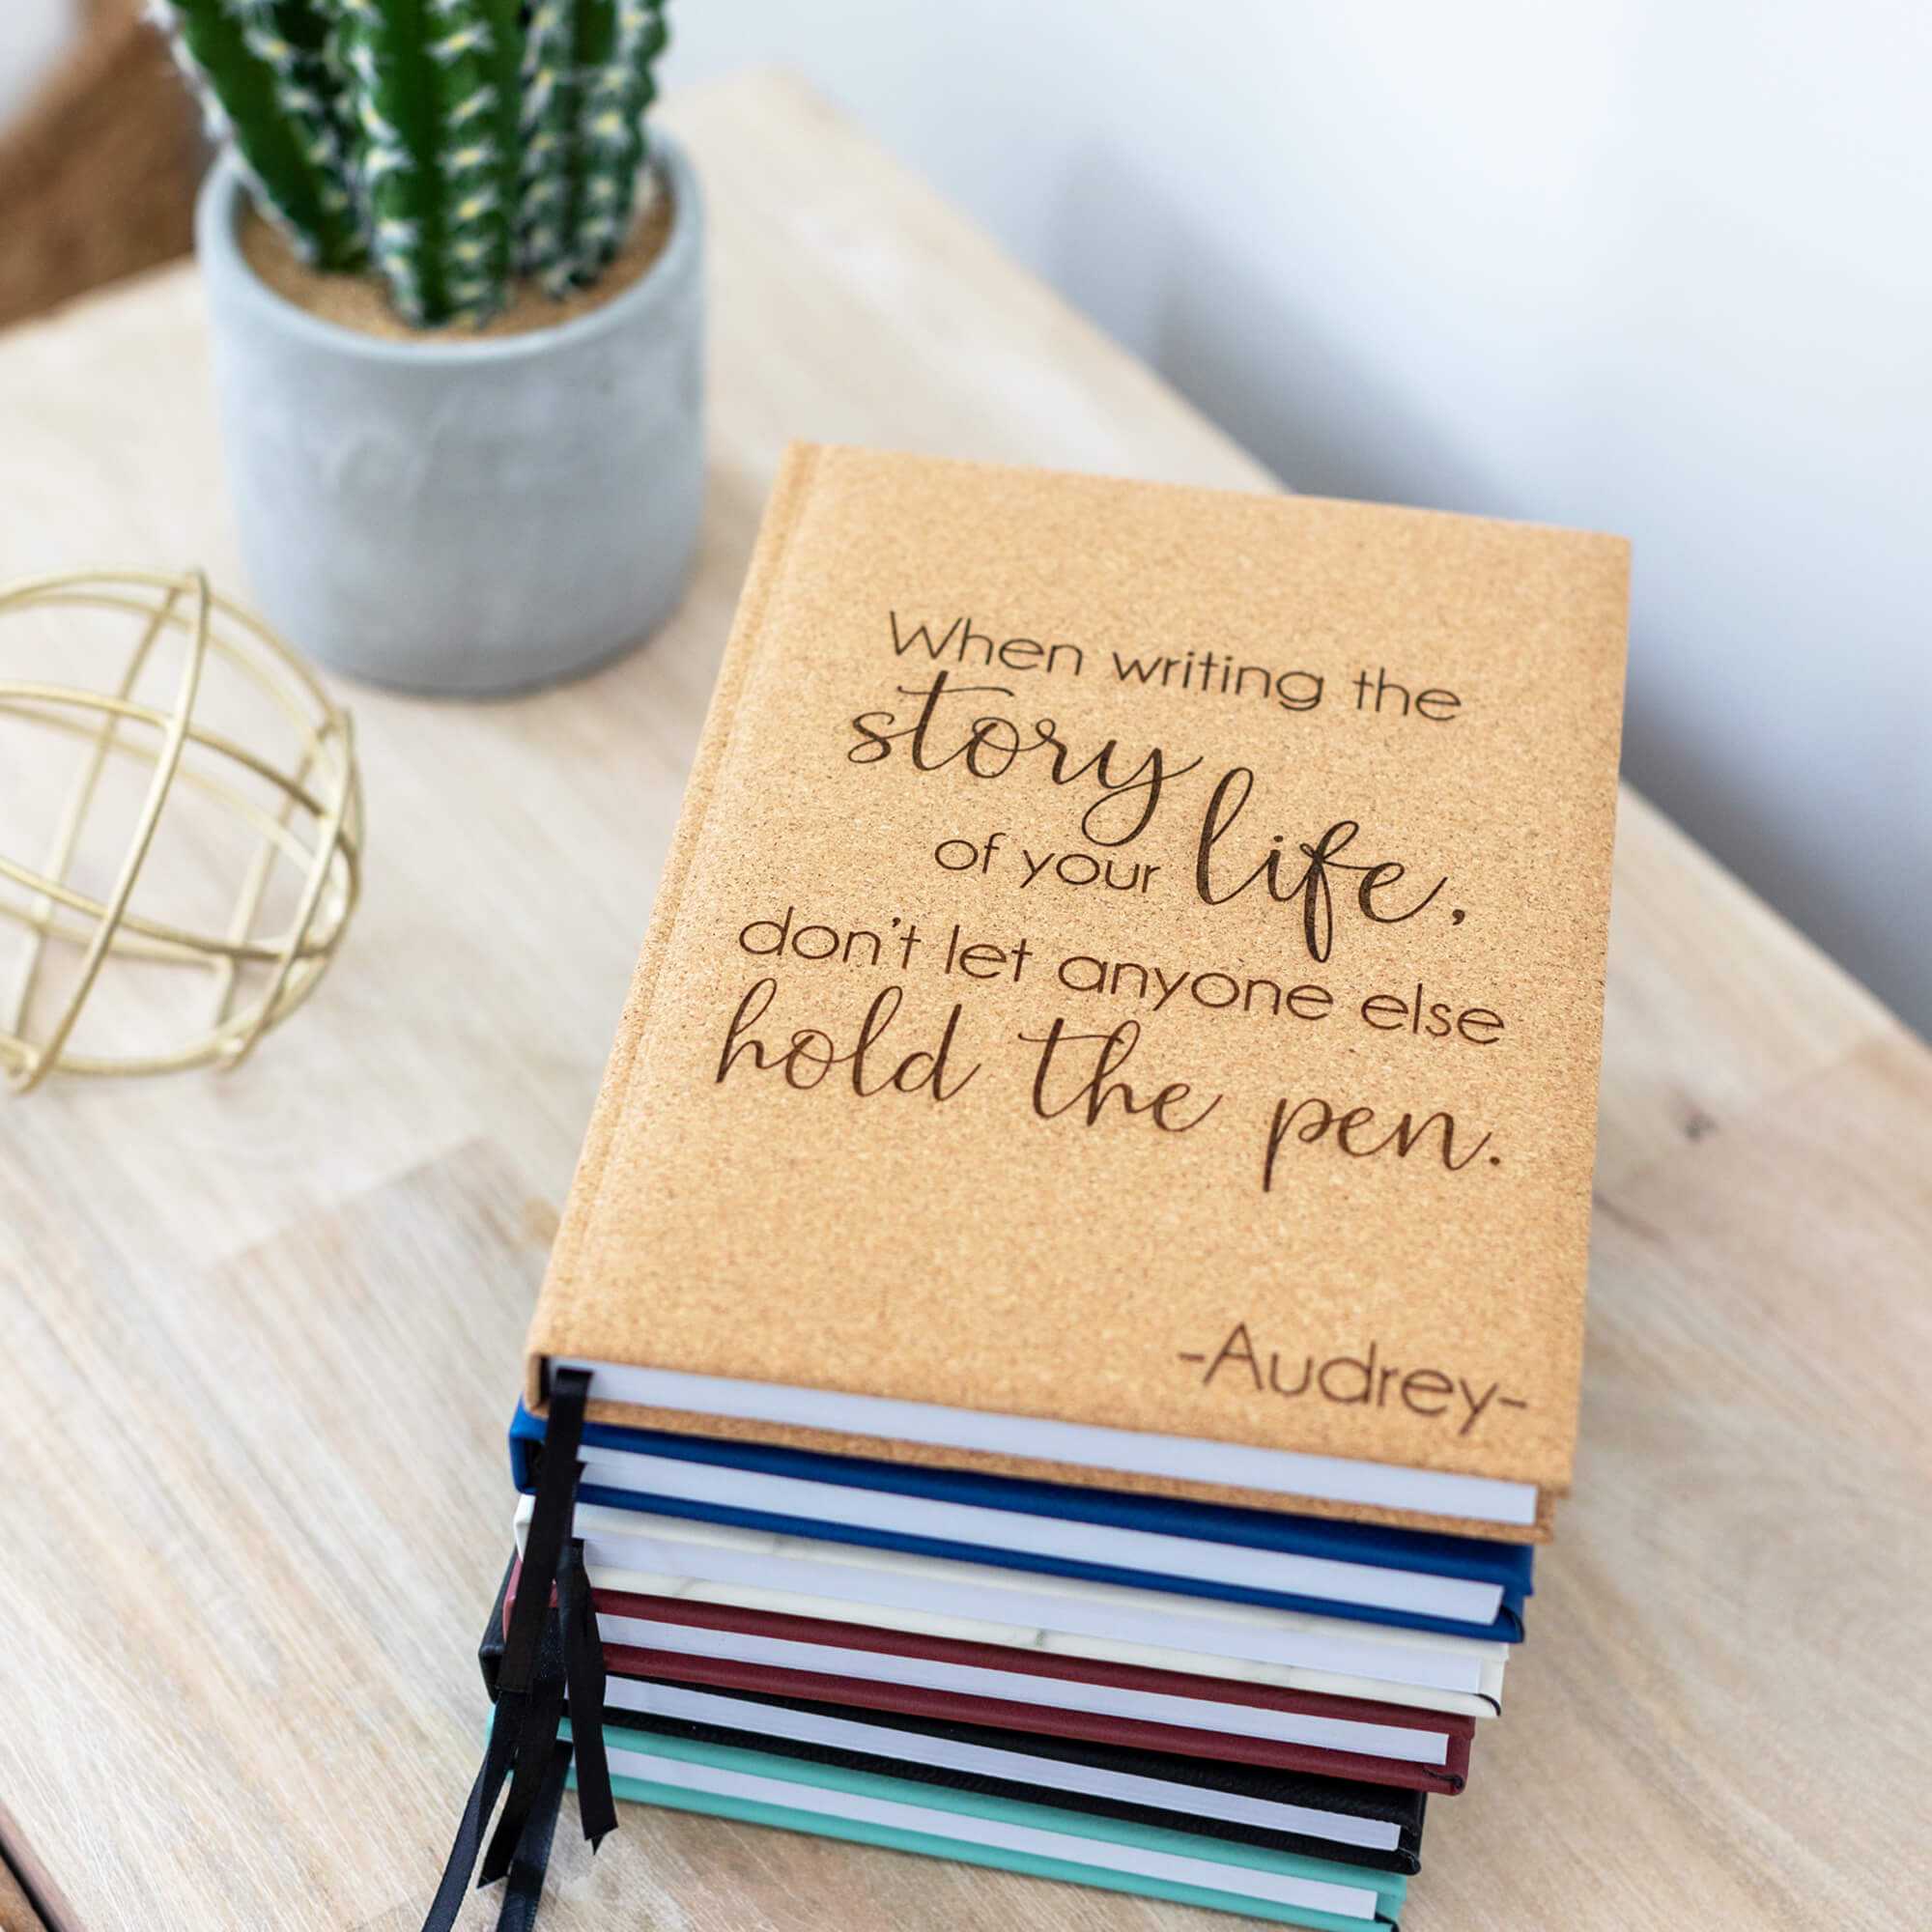 When writing the
story
of your life,
don't let anyone else
hold the pen.
-Audrey-